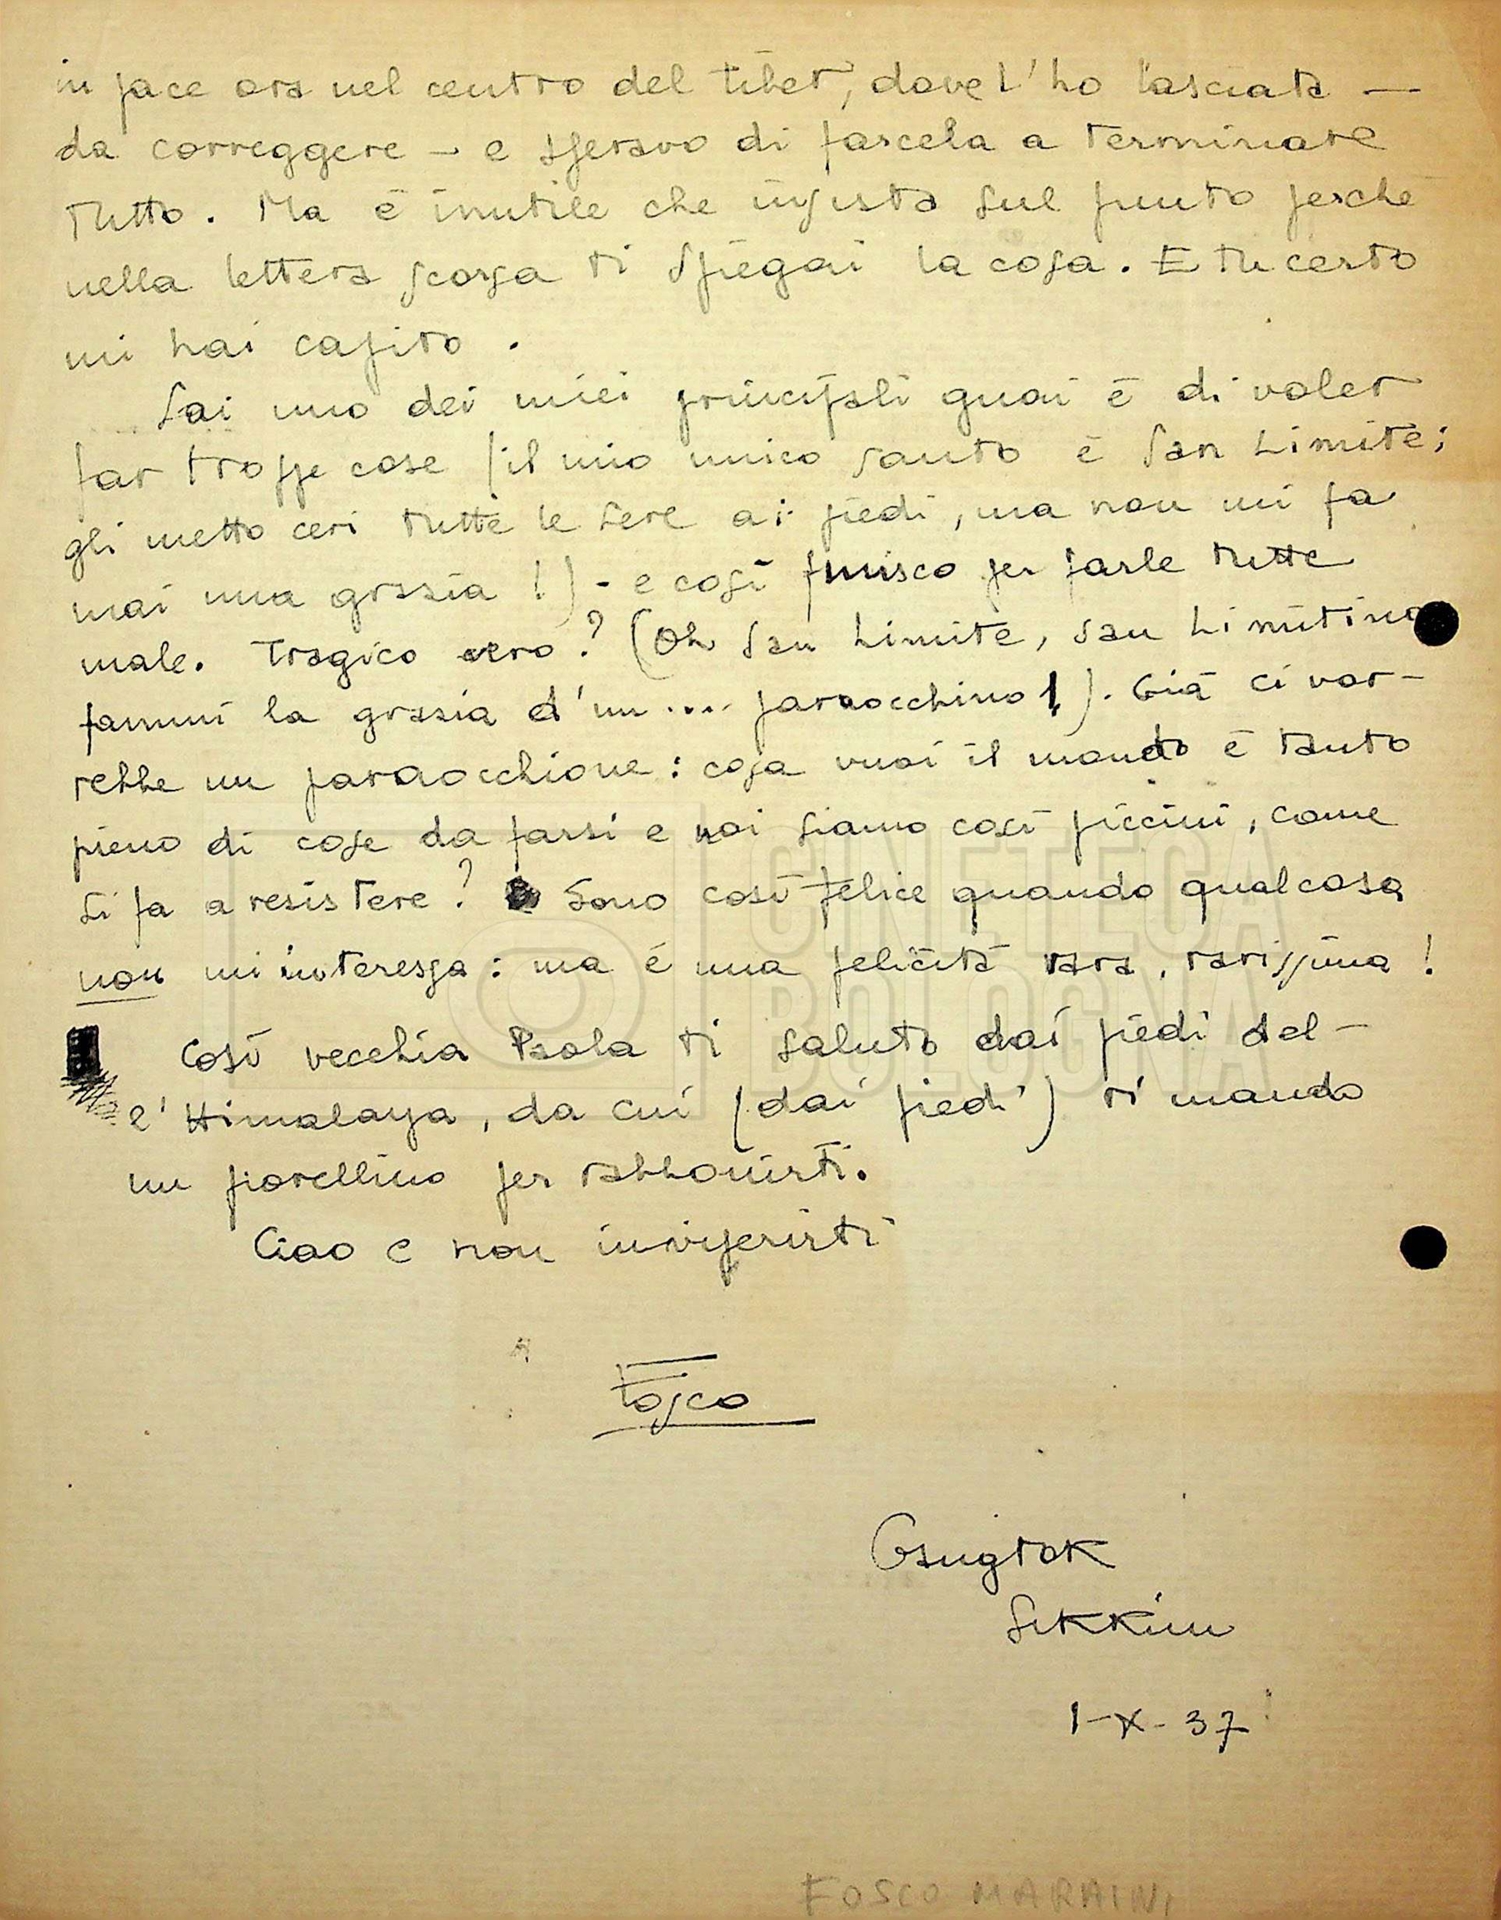 in pace ora nel centro del Tibet, dove l'ho lasciata —
da correggere — e speravo di farcela a terminare
tutto. Ma è inutile che insista sul punto perchè
nella lettera scorsa ti spiegai la cosa. E tu certo
mi hai capito.
Sai uno dei miei principali guai è di voler
far troppe cose (il mio unico santo è San Limite;
gli metto ceri tutte le sere ai piedi, ma non mi fa
mai una grazia!) - e così finisco per farle tutte
male. Tragico vero? (Oh San Limite, San Limitino
fammi la grazia d'un .... paraocchino!). Già ci vor-
rebbe un paraocchione: cosa vuoi il mondo è tanto
pieno di cose da farsi e noi siamo così piccini, come
si fa a resistere? Sono così felice quando qualcosa
non mi interessa: ma é una felicità rara, rarissima!
Così vecchia Paola ti saluto dai piedi del-
l'Himalaya, da cui (dai piedi) ti mando
un fiorellino per rabbonirti.
Ciao e non inviperirti
Fosco
Gangtok
Sikkim
1-X-37
FOSCO MARAINI
CINETECA
BOLOGNA